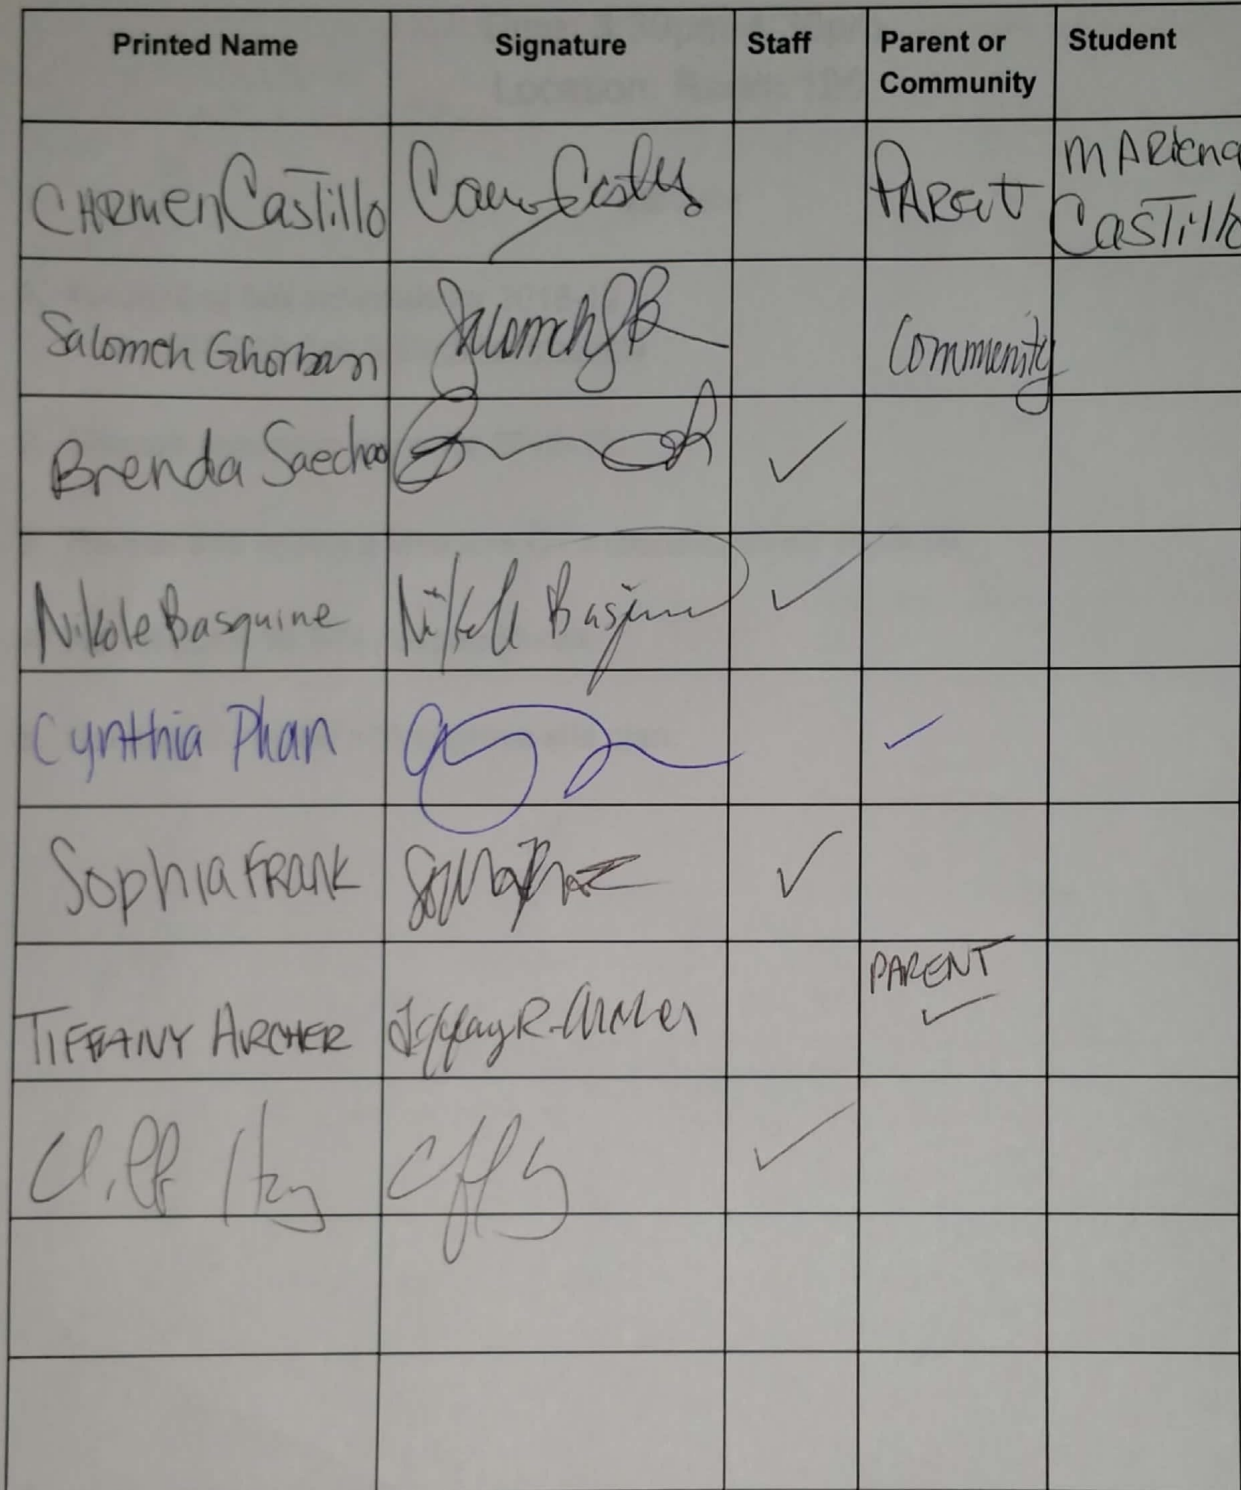 Printed Name Signature Staff Parent or Community Student
CHARMEN CasTillo PARENT MARlena CasTillo
Salomeh Ghorban Salomeh Community
Brenda Saechao ✓
Nikole Basquine Nikole Basquine ✓
Cynthia Phan ✓
Sophia FRANK ✓
TIFFANY ARCHER Tiffany R. Archer PARENT ✓
Cliff ✓